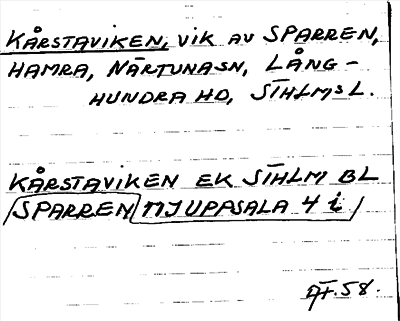 KÅRSTAVIKEN, VIK AV SPARREN,
HAMRA, NÄRTUNASN, LÅNG-
HUNDRA HD, STHLMSL.
KÅRSTAVIKEN EK STHLM BL
SPARREN NJ UPPSALA 4 i
58.